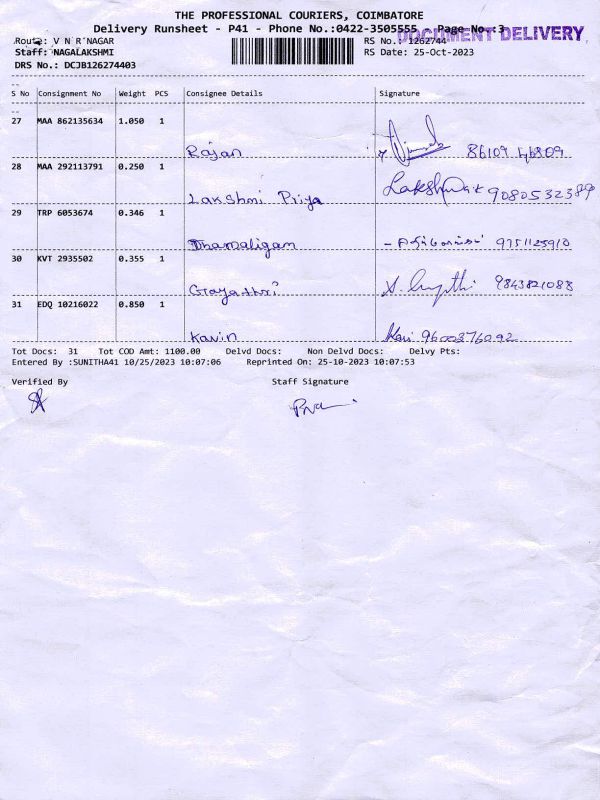 THE PROFESSIONAL COURIERS, COIMBATORE
Delivery Runsheet - P41 - Phone No.:0422-3505555 Page No.:3
DOCUMENT DELIVERY
Route: V N R NAGAR
RS No.: 1262744
Staff: NAGALAKSHMI
RS Date: 25-Oct-2023
DRS No.: DCJB126274403
S No Consignment No Weight PCS Consignee Details Signature
27 MAA 862135634 1.050 1
Rajan 86109 46809
28 MAA 292113791 0.250 1
Lakshmi Priya Lakshmi 9080532389
29 TRP 6053674 0.346 1
Thamaligam - 9751125910
30 KVT 2935502 0.355 1
Gayathri 9843821088
31 EDQ 10216022 0.850 1
Kavin Kavi 9600376092
Tot Docs: 31 Tot COD Amt: 1100.00 Delvd Docs: Non Delvd Docs: Delvy Pts:
Entered By :SUNITHA41 10/25/2023 10:07:06 Reprinted On: 25-10-2023 10:07:53
Verified By Staff Signature